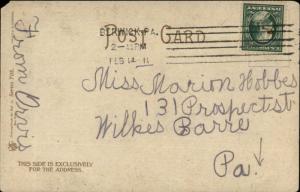 BERWICK, PA.
POST CARD
2-PM
FEB 14 11
From Chris
Miss Marion Hobbes
131 Prospect st
Wilkes Barre
Pa
THIS SIDE IS EXCLUSIVELY
FOR THE ADDRESS.